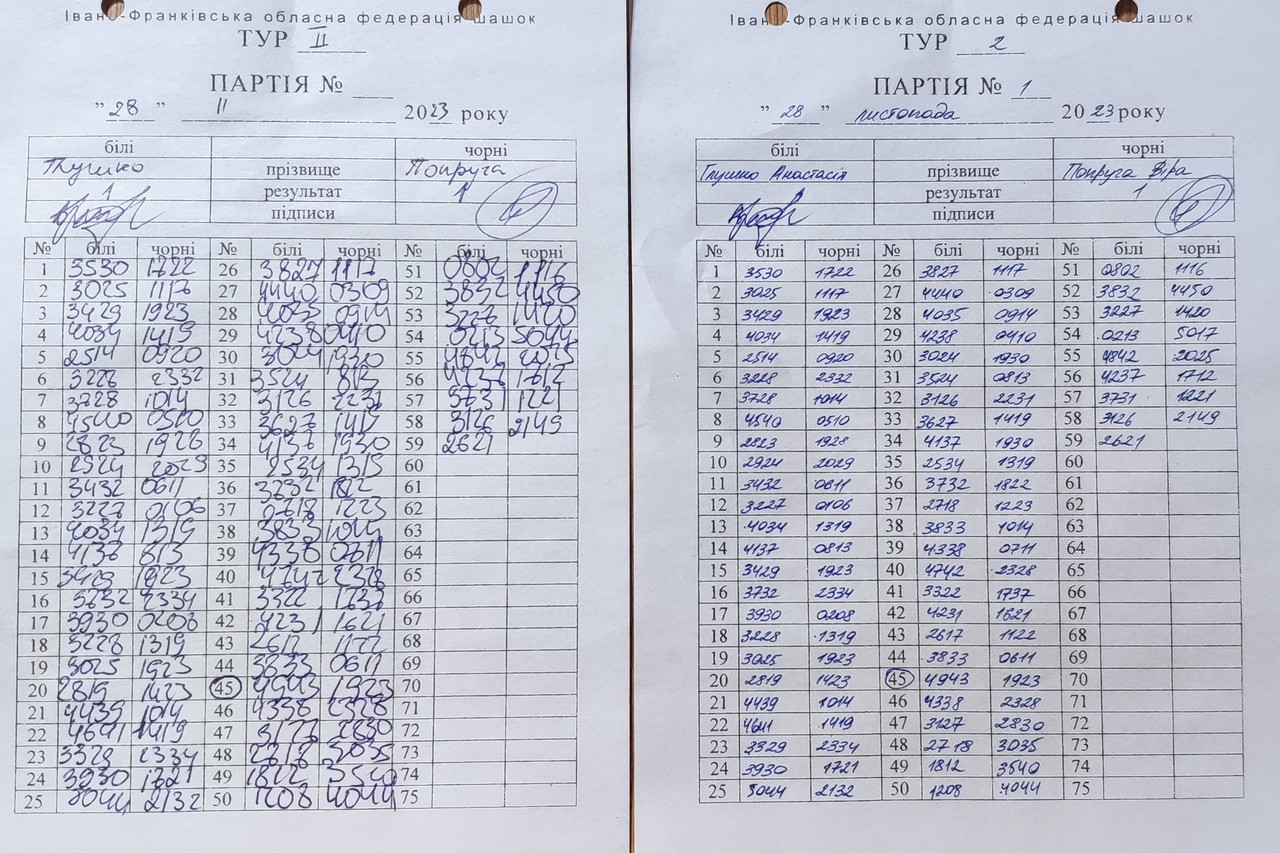 Івано-Франківська обласна федерація шашок
ТУР II
ПАРТІЯ №
"28" II 2023 року
білі чорні
Глушко прізвище Попруга
1 результат 1
підписи
№ білі чорні № білі чорні № білі чорні
1 3530 1722 26 3827 1117 51 0802 1116
2 3025 1117 27 4440 0309 52 3832 4450
3 3429 1923 28 4035 0914 53 3227 1420
4 4034 1419 29 4238 0410 54 0213
5 2514 0920 30 3024 1930 55 4842 2025
6 3228 2332 31 3524 813 56 4237 1712
7 3728 1014 32 3126 2231 57 3731 1221
8 4540 0510 33 3627 1419 58 3126 2149
9 2823 1928 34 4137 1930 59 2621
10 2924 2029 35 2534 1319 60
11 3432 0611 36 3732 1822 61
12 3227 0106 37 2718 1223 62
13 4034 1319 38 3833 1014 63
14 4137 813 39 4338 0711 64
15 3429 1923 40 4742 2328 65
16 3732 2334 41 3322 1737 66
17 3930 0208 42 4231 1621 67
18 3228 1319 43 2617 1122 68
19 3025 1923 44 3833 0611 69
20 2819 1423 45 4943 1923 70
21 4439 1014 46 4338 2328 71
22 4641 1419 47 3127 2830 72
23 3329 2334 48 2718 3035 73
24 3930 1721 49 1812 3540 74
25 5044 2132 50 1208 4044 75
Івано-Франківська обласна федерація шашок
ТУР 2
ПАРТІЯ № 1
"28" листопада 2023 року
білі чорні
Глушко Анастасія прізвище Попруга Віра
результат 1
підписи
№ білі чорні № білі чорні № білі чорні
1 3530 1722 26 3827 1117 51 0802 1116
2 3025 1117 27 4440 0309 52 3832 4450
3 3429 1923 28 4035 0914 53 3227 1420
4 4034 1419 29 4238 0410 54 0213 5017
5 2514 0920 30 3024 1930 55 4842 2025
6 3228 2332 31 3524 0813 56 4237 1712
7 3728 1014 32 3126 2231 57 3731 1221
8 4540 0510 33 3627 1419 58 3126 2149
9 2823 1928 34 4137 1930 59 2621
10 2924 2029 35 2534 1319 60
11 3432 0611 36 3732 1822 61
12 3227 0106 37 2718 1223 62
13 4034 1319 38 3833 1014 63
14 4137 0813 39 4338 0711 64
15 3429 1923 40 4742 2328 65
16 3732 2334 41 3322 1737 66
17 3930 0208 42 4231 1621 67
18 3228 1319 43 2617 1122 68
19 3025 1923 44 3833 0611 69
20 2819 1423 45 4943 1923 70
21 4439 1014 46 4338 2328 71
22 4641 1419 47 3127 2830 72
23 3329 2334 48 2718 3035 73
24 3930 1721 49 1812 3540 74
25 5044 2132 50 1208 4044 75